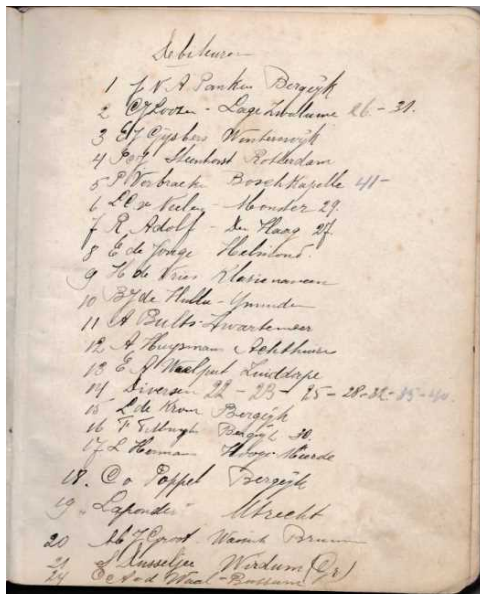 Debiteuren
1 J N A Panken Bergeijk
2 CJ Loozen - Lage Zwaluwe 26 - 31.
3 EJ Gijsbers Winterswijk
4 Steenhorst Rotterdam
5 P Verbraeken Boschkapelle 41 -
6 29.
7 R. Adolf - Den Haag 27.
8 E de Jonge Helmond.
9 H de Vries Klazienaveen
10 BJ de Hullu - Ymuiden
11 A Bults - Zwartemeer
12 A Huysman Achthuizen
13 E A Waalput Zuiddorpe
14 Diversen 22 - 23 - 25 - 28 - 32 - 35 - 40.
15 L de Kroon Bergeijk
16 F Bergeijk 30.
17 L Herman Hooge Mierde
18. C v Poppel Bergeijk
19 Laponder Utrecht
20 J Groot
21 Dusseljee Wirdum (Gr)
24 C A v d Waal - Bussum